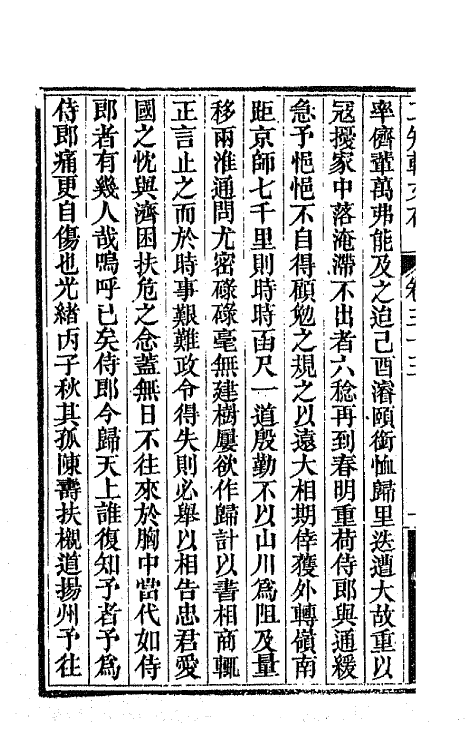 二知軒文存 卷三十三
率儕輩萬弗能及之迨己酉濬頤銜恤歸里迭遭大故重以
冦擾家中落淹滯不出者六稔再到春明重荷侍郎與通緩
急予悒悒不自得顧勉之規之以遠大相期倖獲外轉嶺南
距京師七千里則時時函尺一道殷勤不以山川爲阻及量
移兩淮通問尤密碌碌毫無建樹屢欲作歸計以書相商輒
正言止之而於時事艱難政令得失則必舉以相告忠君愛
國之忱與濟困扶危之念蓋無日不往來於胸中當代如侍
郎者有幾人哉嗚呼已矣侍郎今歸天上誰復知予者予爲
侍郎痛更自傷也光緒丙子秋其孤陳壽扶櫬道揚州予往